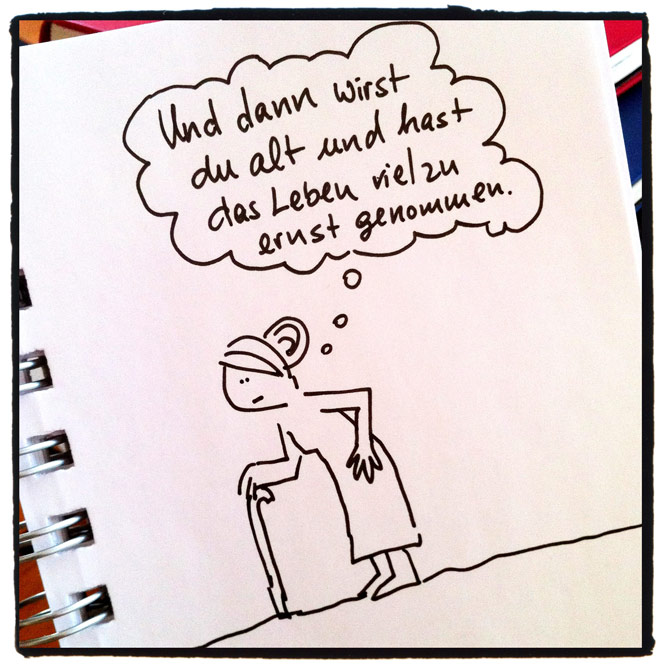 Und dann wirst
du alt und hast
das Leben viel zu
ernst genommen.